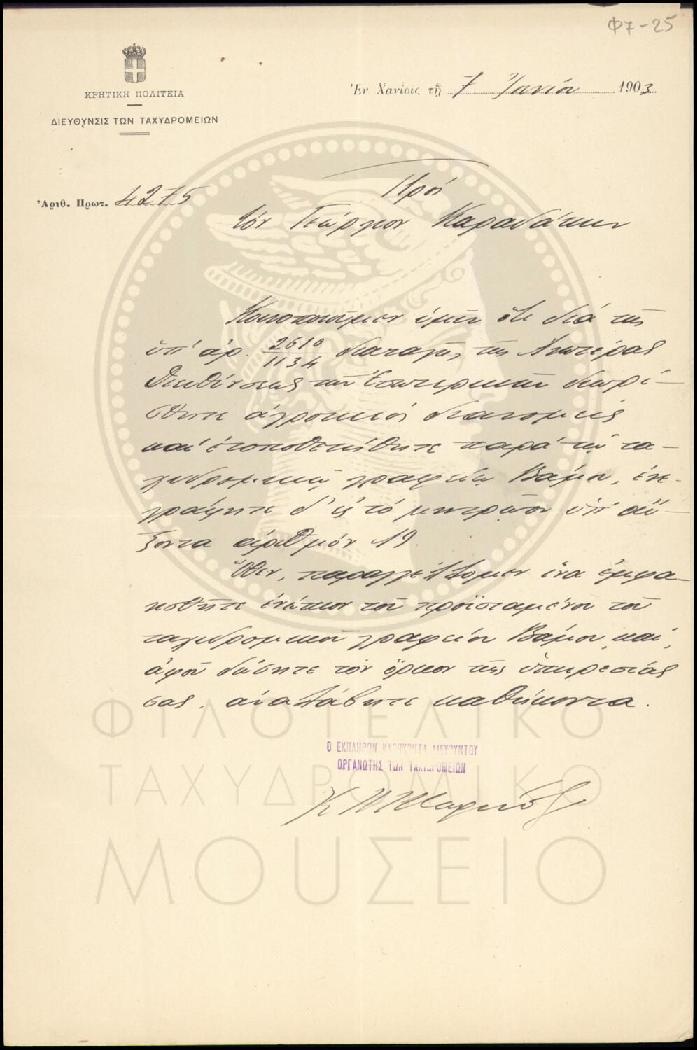 Φ7-25
ΚΡΗΤΙΚΗ ΠΟΛΙΤΕΙΑ
ΔΙΕΥΘΥΝΣΙΣ ΤΩΝ ΤΑΧΥΔΡΟΜΕΙΩΝ
Ἐν Χανίοις τῇ 7 Ἰουνίου 1903
Ἀριθ. Πρωτ. 4275
Πρός
τόν Γεώργιον
Κοινοποιοῦμεν ὑμῖν ὅτι διά τῆς
ὑπ' ἀρ. 2610/1134 διαταγῆς τῆς Ἀνωτέρας
Διευθύνσεως τῶν Ἐσωτερικῶν διωρί-
σθητε ἀγροτικός διανομεύς
καί ἐτοποθετήθητε παρά τῷ τα-
χυδρομικῷ γραφείῳ Βάμου, ἐνε-
γράφητε δ' εἰς τό μητρῷον ὑπ' αὔ-
ξοντα ἀριθμόν 19
Ὅθεν, παραγγέλλομεν ἵνα ἐμφα-
νισθῆτε ἐνώπιον τοῦ προϊσταμένου τοῦ
ταχυδρομικοῦ γραφείου Βάμου, καί,
ἀφοῦ δώσητε τόν ὅρκον τῆς ὑπηρεσίας
σας, ἀναλάβητε καθήκοντα.
Ο ΕΚΠΛΗΡΩΝ ΚΑΘΗΚΟΝΤΑ ΔΙΕΥΘΥΝΤΟΥ
ΟΡΓΑΝΩΤΗΣ ΤΩΝ ΤΑΧΥΔΡΟΜΕΙΩΝ
ΦΙΛΟΤΕΛΙΚΟ
ΤΑΧΥΔΡΟΜΙΚΟ
ΜΟΥΣΕΙΟ